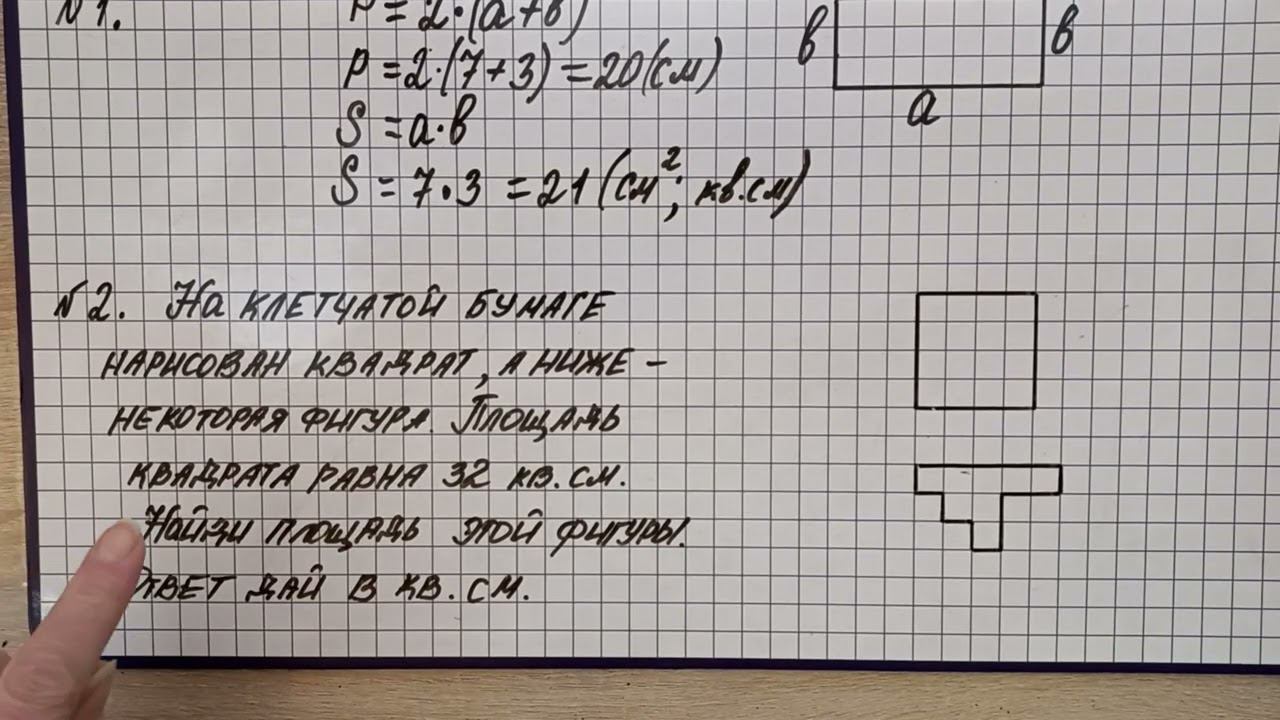 №1. P = 2·(a+b)
P = 2·(7+3) = 20(см)
S = a·b
S = 7·3 = 21 (см²; кв.см)
b b
a
№2. На клетчатой бумаге
нарисован квадрат, а ниже –
некоторая фигура. Площадь
квадрата равна 32 кв.см.
Найди площадь этой фигуры.
Ответ дай в кв.см.